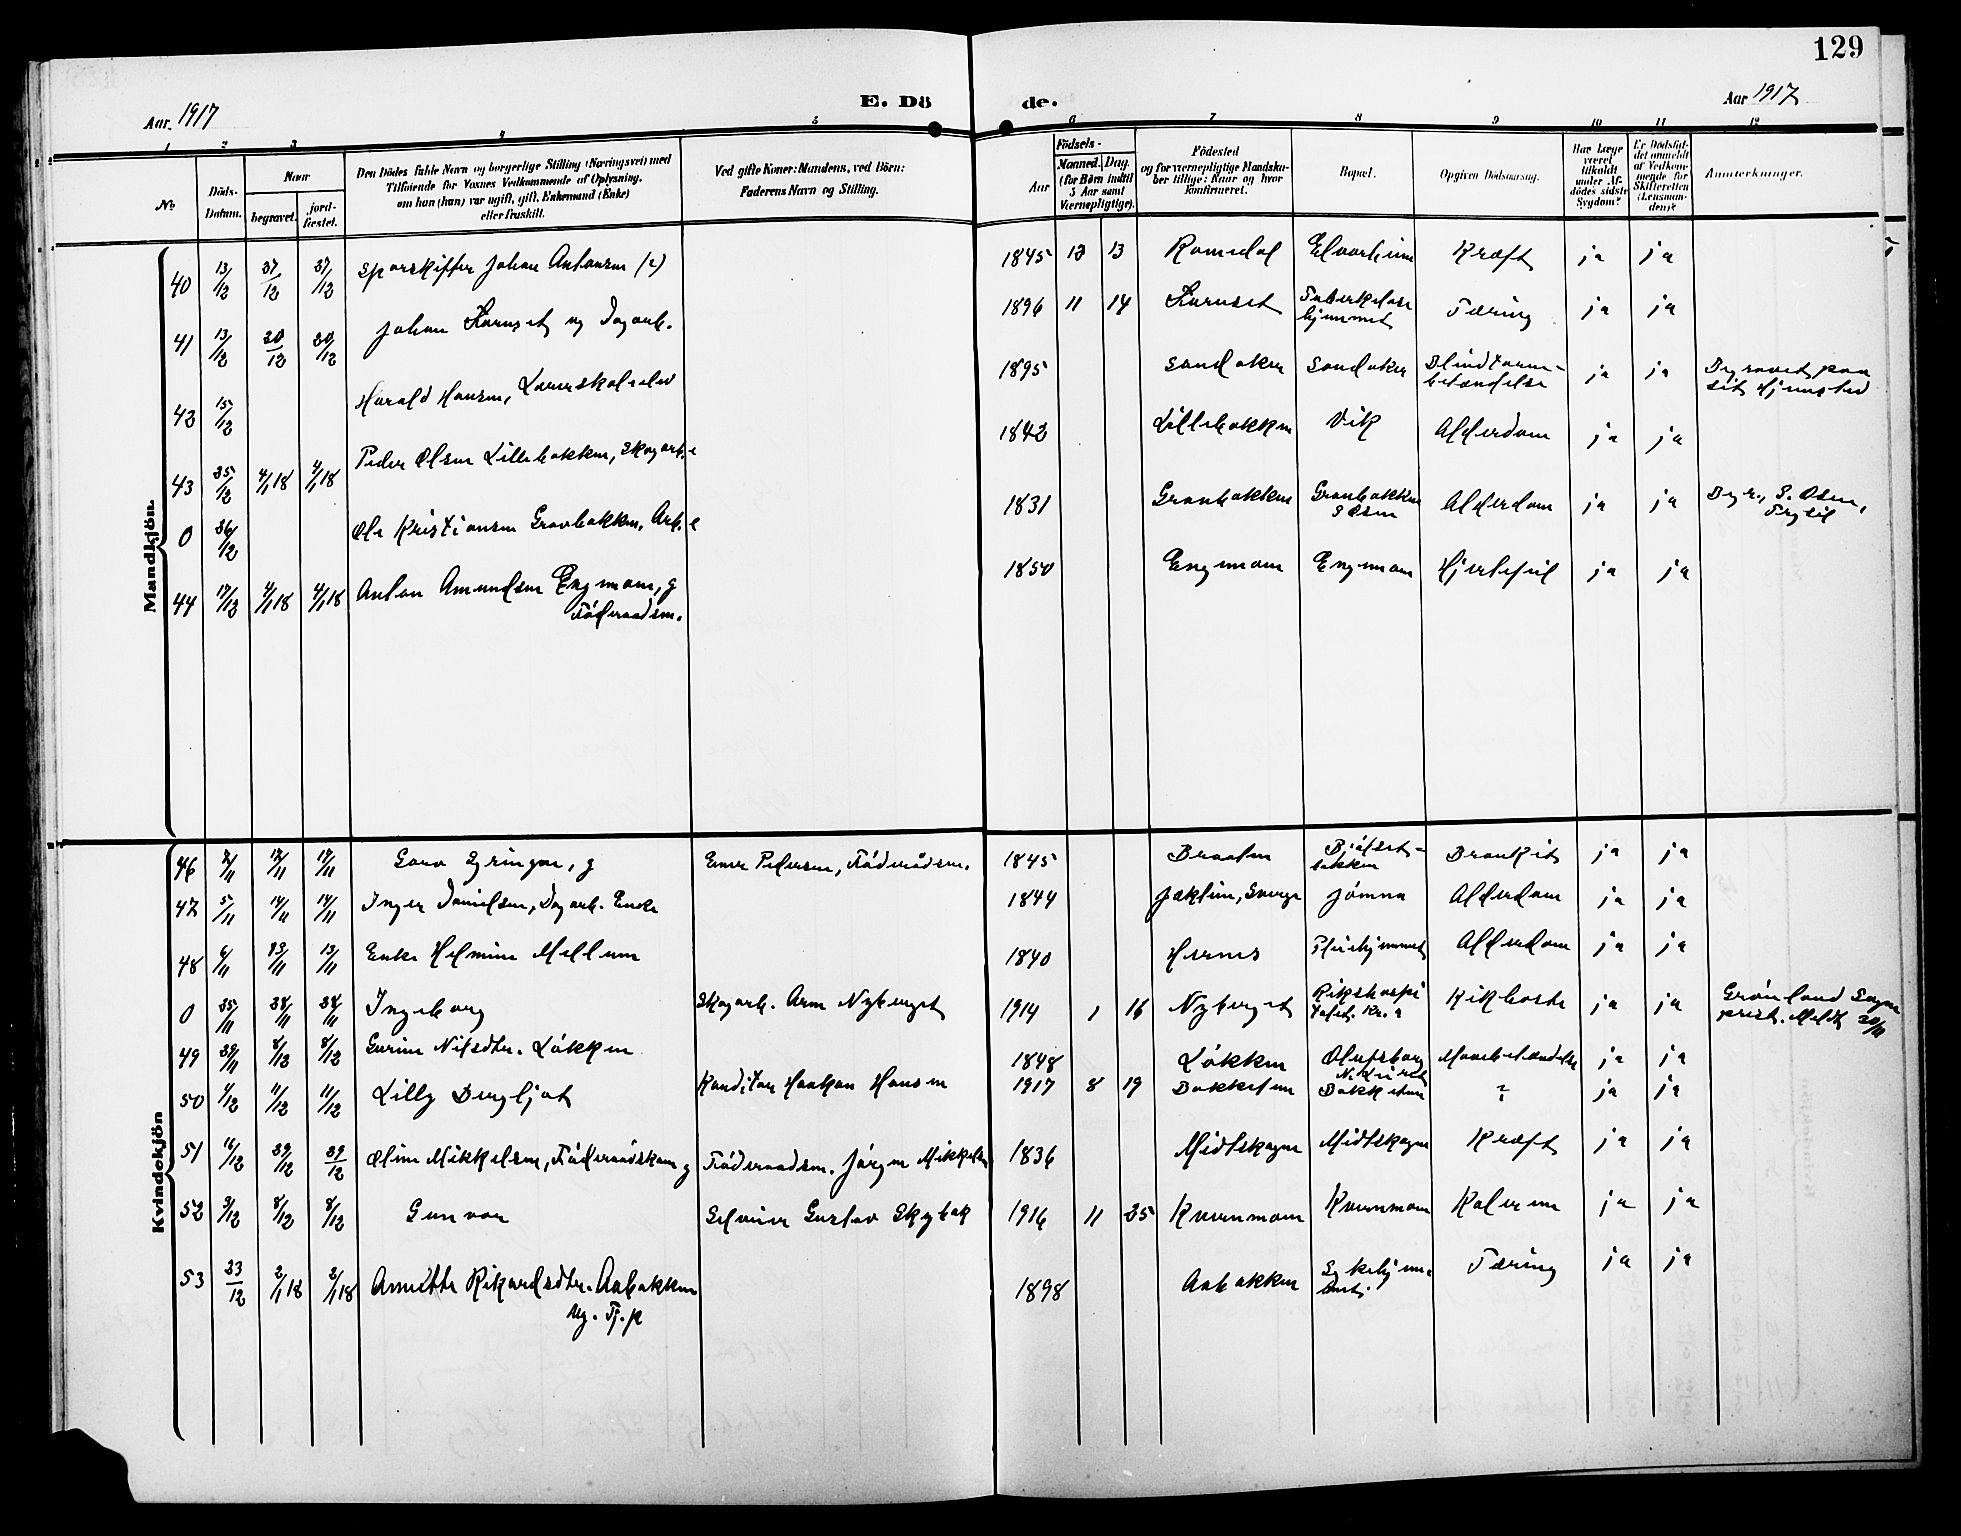 129
Aar. 1917 E. Dö
de. Aar 1917
1 2 3 4 5
6 7 8 9 10 11 12
No.
Döds-Datum.
Naar
begravet.
jord-fæstet.
Den Dödes fulde Navn og borgerlige Stilling (Næringsvei) med
Tilföiende for Voxnes Vedkommende af Oplysning,
om han (hun) var ugift, gift, Enkemand (Enke)
eller fraskilt.
Ved gifte Koner: Mandens, ved Börn:
Faderens Navn og Stilling.
Födsels-
Aar
Maaned. Dag.
(for Börn indtil
5 Aar samt
Værnepligtige).
Födested
og for værnepligtige Mandska-
ber tillige: Naar og hvor
konfirmeret.
Bopæl.
Opgiven Dödsaarsag.
Har Læge
været
tilkaldt
under Af-
dödes sidste
Sygdom?
Er Dödsfal-
det anmeldt
af Vedkom-
mende for
Skifteretten
(Lensman-
den)?
Anmærkninger.
Mandkjön.
40 13/12 27/12 27/12 Sporskifter Johan Antonsen 1845 12 13 Romedal Elvarheim Kræft ja ja
41 13/12 20/12 20/12 Johan Hornset ug Dagarb. 1896 11 14 Hornset Tuberkulose
hjemmet Tæring ja ja
42 15/12 Harald Hansen, Lærerskoleelev 1895 Sandaker Sandaker Blindtarm-
betændelse ja ja Begravet paa
sit Hjemsted
43 25/12 4/1 18 4/1 18 Peder Olsen Lillebakken, Skogarb. e 1842 Lillebakken Vik Alderdom ja ja
0 26/12 Ole Kristiansen Granbakken, Arb. e 1831 Granbakken Granbakken
S Osen Alderdom ja ja Begr., S. Osen,
Trysil
44 17/12 4/1 18 4/1 18 Anton Amundsen Engmoen, g
Föderaadsm. 1850 Engmoen Engmoen Hjertefeil ja ja
Kvindekjön
46 2/11 12/11 12/11 g Einar Pedersen, Föderådsm. 1845 Braaten Bronkit ja ja
47 5/11 14/11 14/11 Inger Danielsen, Dagarb. Enke 1844 Sverge Jömna Alderdom ja ja
48 6/11 13/11 13/11 Enke Helmine Mellum 1840 Hernes Pleiehjemmet Alderdom ja ja
0 25/11 28/11 28/11 Ingeborg Skogarb. Arne Nyberget 1914 1 16 Nyberget Rikshospi
talet. Kr.a Kikhoste ja ja Grönland Sogne
prest. Meldt 30/11
49 29/11 8/12 8/12 Gurine Nilsdtr. Lökken 1848 Lökken Olufsborg
Mavebetændelse ja ja
50 1/12 11/12 11/12 Lilly Bergljot Konditor Haakon Hansen 1917 8 19 Bakketun Bakketun ? ja ja
51 16/12 29/12 29/12 Oline Mikkelsen, Föderaadskone g Föderaadsm. Jörgen Mikkelsen 1836 Midtskogen Midtskogen Kræft ja ja
52 3/12 8/12 8/12 Gunvor Selveier Gustav Skybak 1916 11 25 Kvernmoen Kvernmoen Kolerine ja ja
53 23/12 2/1 18 2/1 18 Annette Rikardsdtr. Aabakken
ug. Tj.p 1898 Aabakken Sykehjem. Tæring ja ja